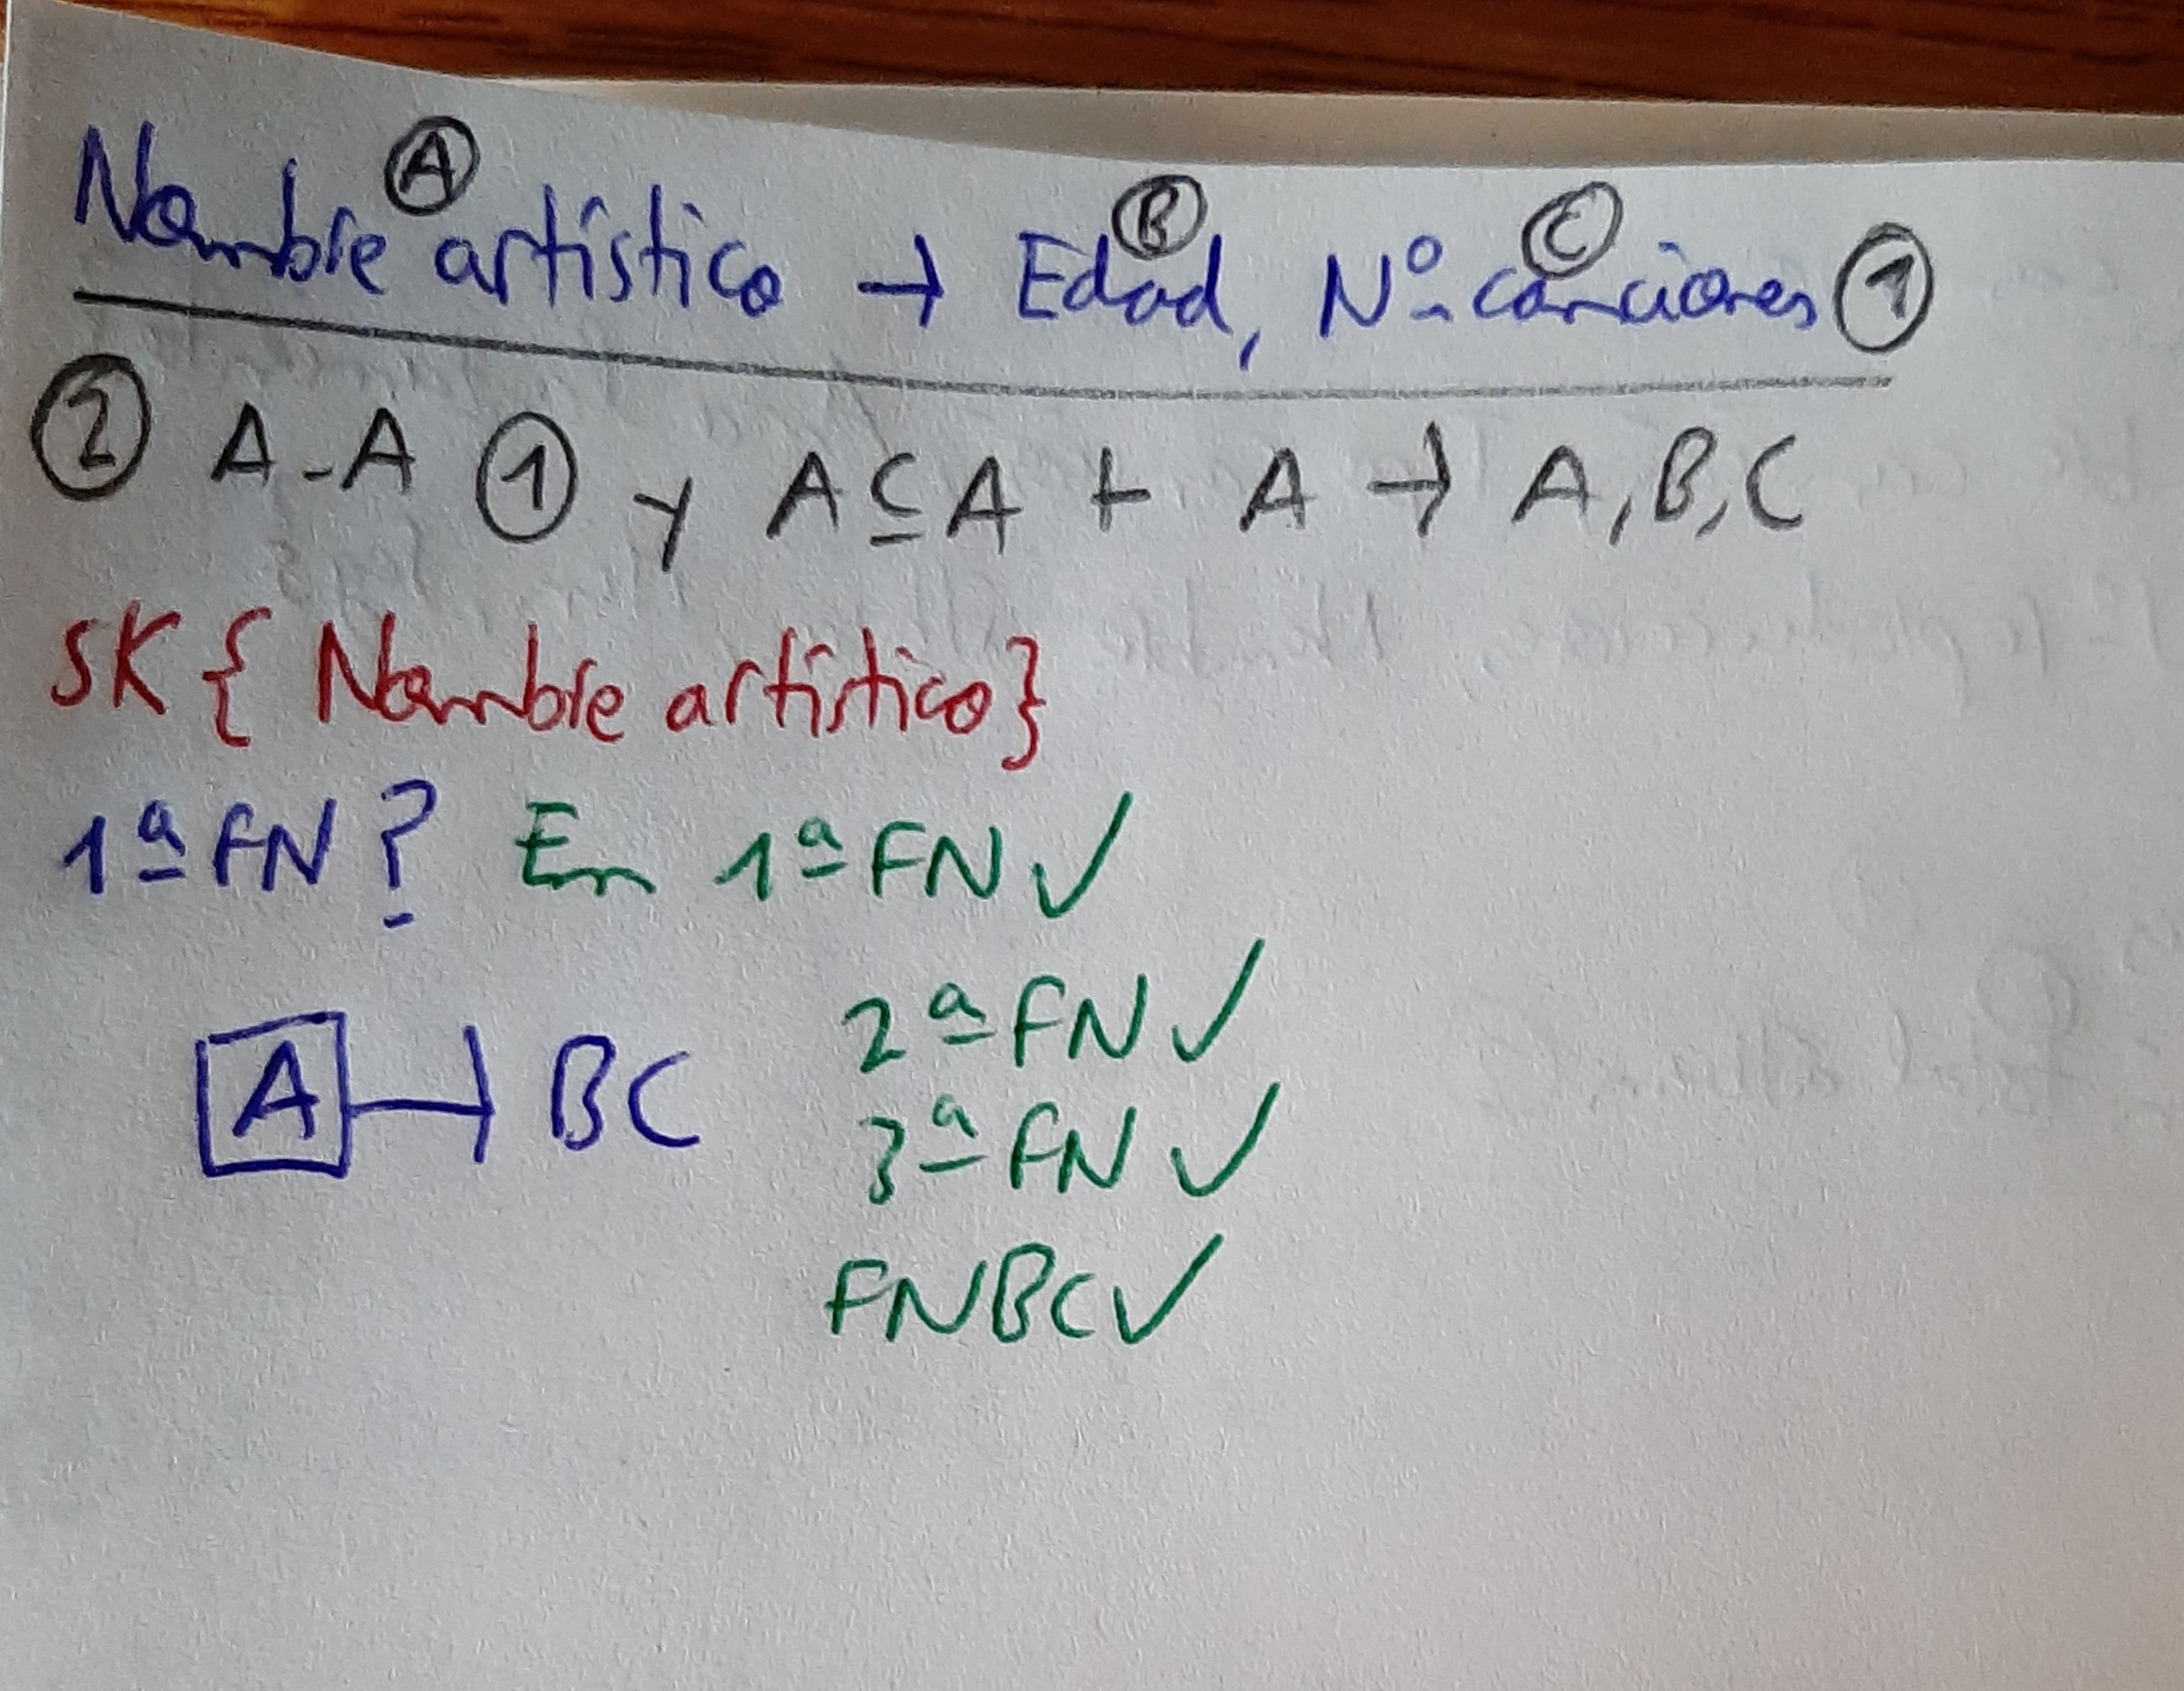 Nombre artístico → Edad, Nº canciones ①
Ⓐ Ⓑ Ⓒ
② A-A ① y A⊆A + A → A,B,C
SK { Nombre artístico}
1ª FN? En 1ª FN ✓
2ª FN ✓
A → BC
3ª FN ✓
FNBC ✓